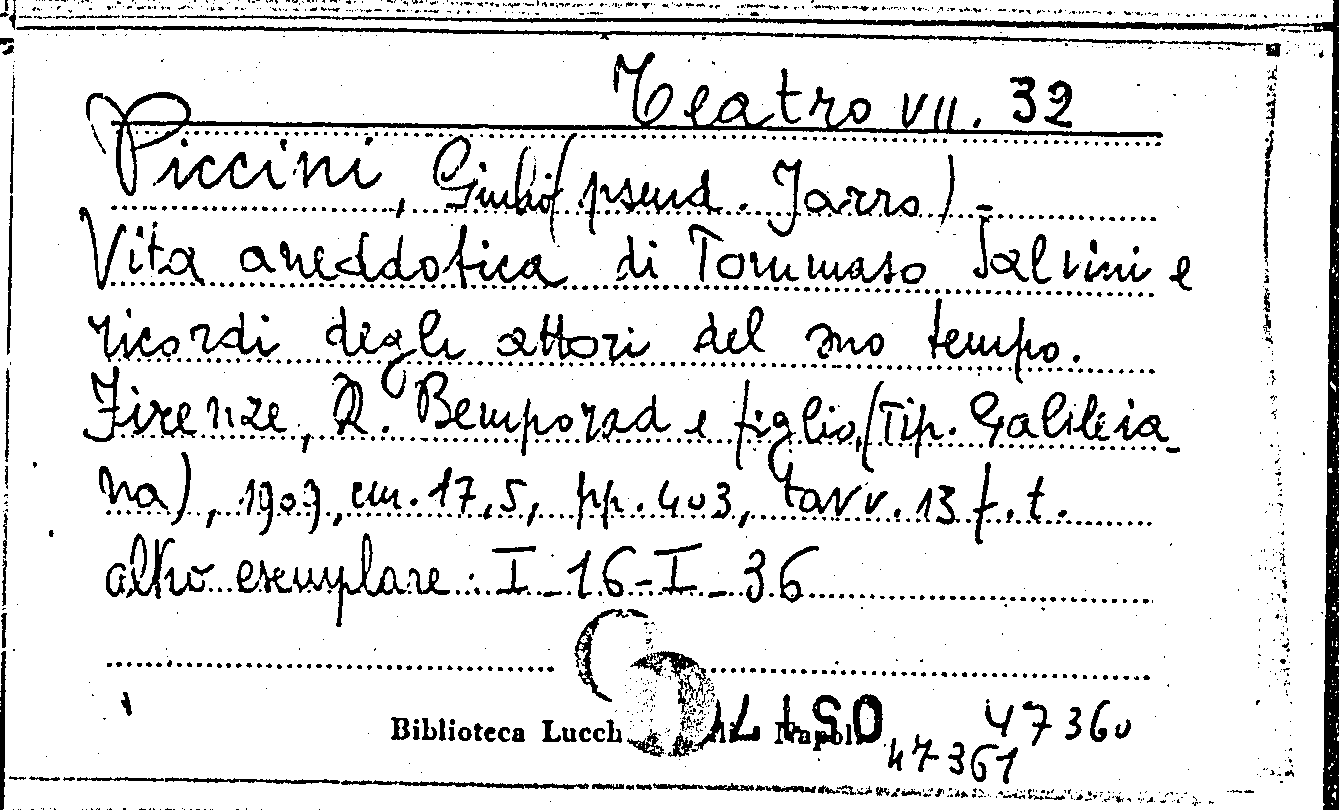 Teatro VII. 32
Piccini, Giulio (pseud. Jarro) -
Vita aneddotica di Tommaso Salvini e
ricordi degli attori del suo tempo.
Firenze, R. Bemporad e figlio, (Tip. Galileia-
na), 1909, cm. 17,5, pp. 403, tavv. 13 f.t.
altro esemplare: I-16-I-36
Biblioteca Lucch Napoli
47360
47361